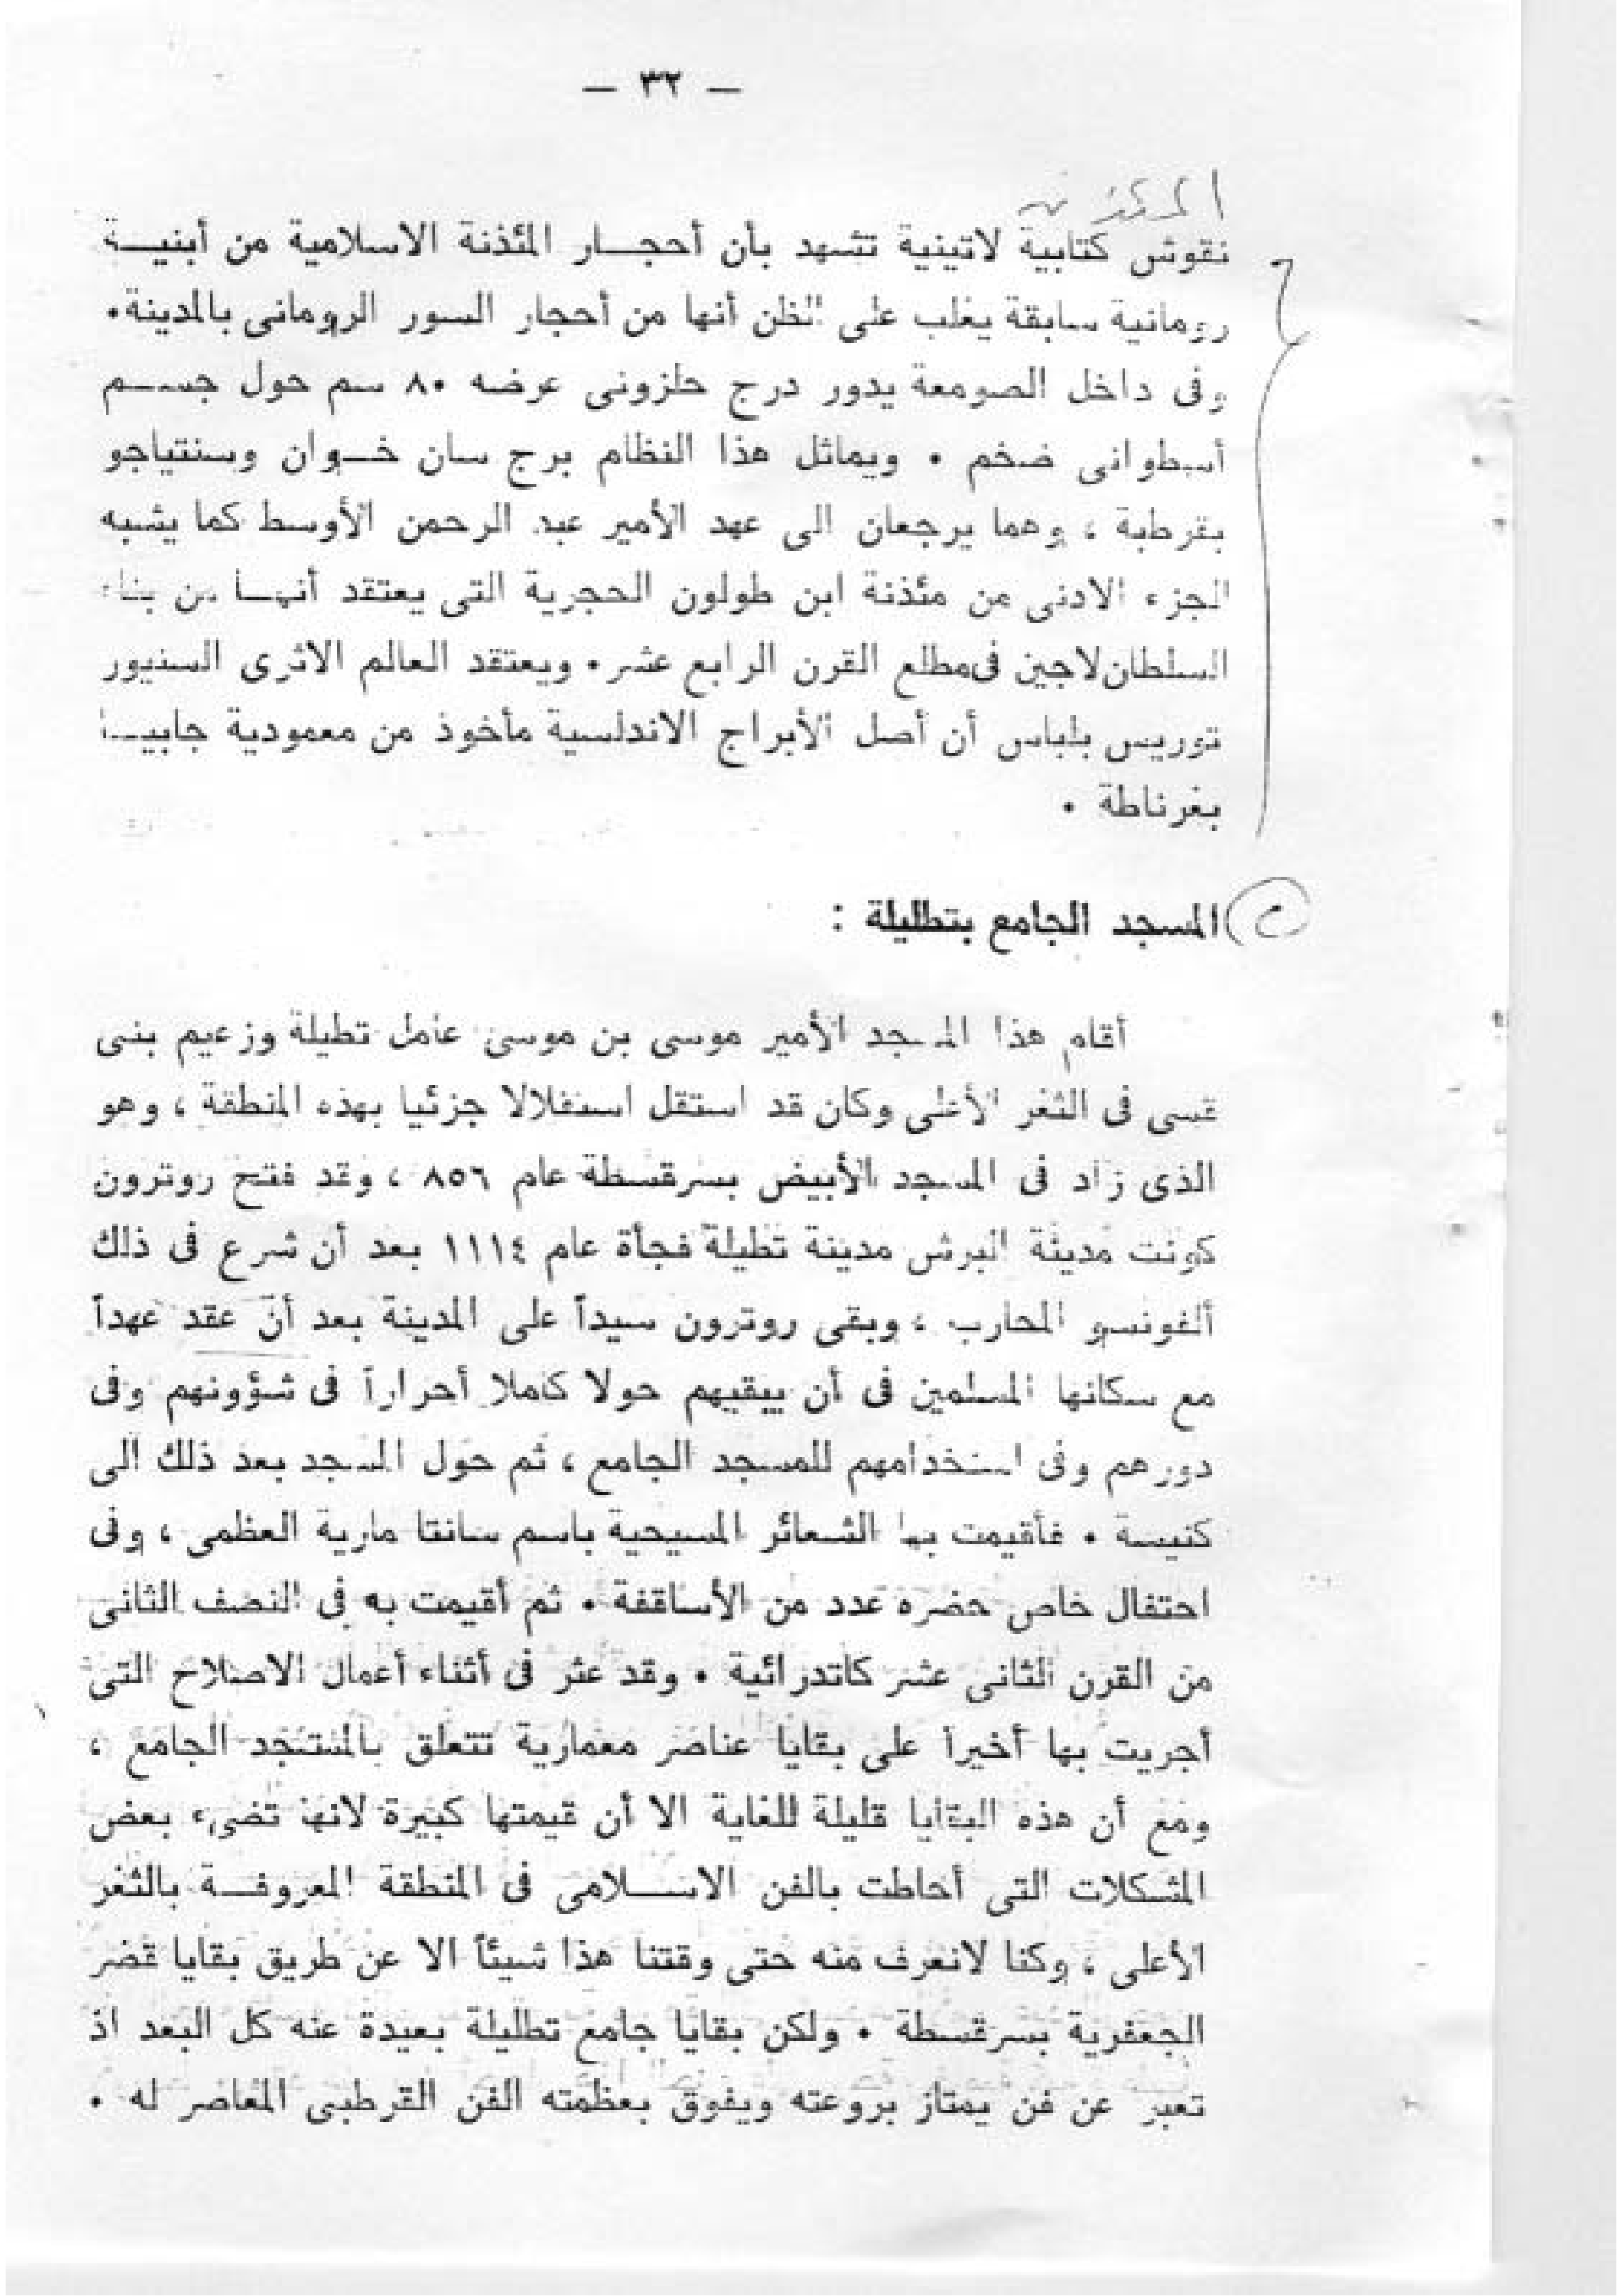 — ٣٢ —
نقوش كتابية لاتينية تشهد بأن أحجـــار المئذنة الاسلامية من أبنيـــة
رومانية سابقة يغلب على الظن أنها من أحجار السور الرومانى بالمدينة٠
وفى داخل الصومعة يدور درج حلزونى عرضه ٨٠ سم حول جســـم
أسطوانى ضخم ٠ ويماثل هذا النظام برج سان خــوان وسنتياجو
بقرطبة ، وهما يرجعان الى عهد الأمير عبد الرحمن الأوسط كما يشبه
الجزء الادنى من مئذنة ابن طولون الحجرية التى يعتقد أنهــا من بناء
السلطان لاجين فى مطلع القرن الرابع عشر ٠ ويعتقد العالم الاثرى السنيور
توريس بلباس أن أصل الأبراج الاندلسية مأخوذ من معمودية جابيــا
بغرناطة ٠
المسجد الجامع بتطليلة :
أقام هذا المسجد الأمير موسى بن موسى عامل تطيلة وزعيم بنى
قسى فى الثغر الأعلى وكان قد استقل استقلالا جزئيا بهذه المنطقة ، وهو
الذى زاد فى المسجد الأبيض بسرقسطة عام ٨٥٦ ، وقد فتح روترون
كونت مدينة البرش مدينة تطيلة فجأة عام ١١١٤ بعد أن شرع فى ذلك
ألفونسو المحارب ، وبقى روترون سيداً على المدينة بعد أن عقد عهداً
مع سكانها المسلمين فى أن يبقيهم حولا كاملا أحراراً فى شؤونهم وفى
دورهم وفى استخدامهم للمسجد الجامع ، ثم حول المسجد بعد ذلك الى
كنيسة ٠ فأقيمت بها الشعائر المسيحية باسم سانتا مارية العظمى ، وفى
احتفال خاص حضره عدد من الأساقفة ٠ ثم أقيمت به فى النصف الثانى
من القرن الثانى عشر كاتدرائية ٠ وقد عثر فى أثناء أعمال الاصلاح التى
أجريت بها أخيراً على بقايا عناصر معمارية تتعلق بالمسجد الجامع ،
ومع أن هذه البقايا قليلة للغاية الا أن قيمتها كبيرة لانها تضىء بعض
المشكلات التى أحاطت بالفن الاســـلامى فى المنطقة المعروفـــة بالثغر
الأعلى ، وكنا لانعرف منه حتى وقتنا هذا شيئاً الا عن طريق بقايا قصر
الجعفرية بسرقسطة ٠ ولكن بقايا جامع تطليلة بعيدة عنه كل البعد اذ
تعبر عن فن يمتاز بروعته ويفوق بعظمته الفن القرطبى المعاصر له ٠